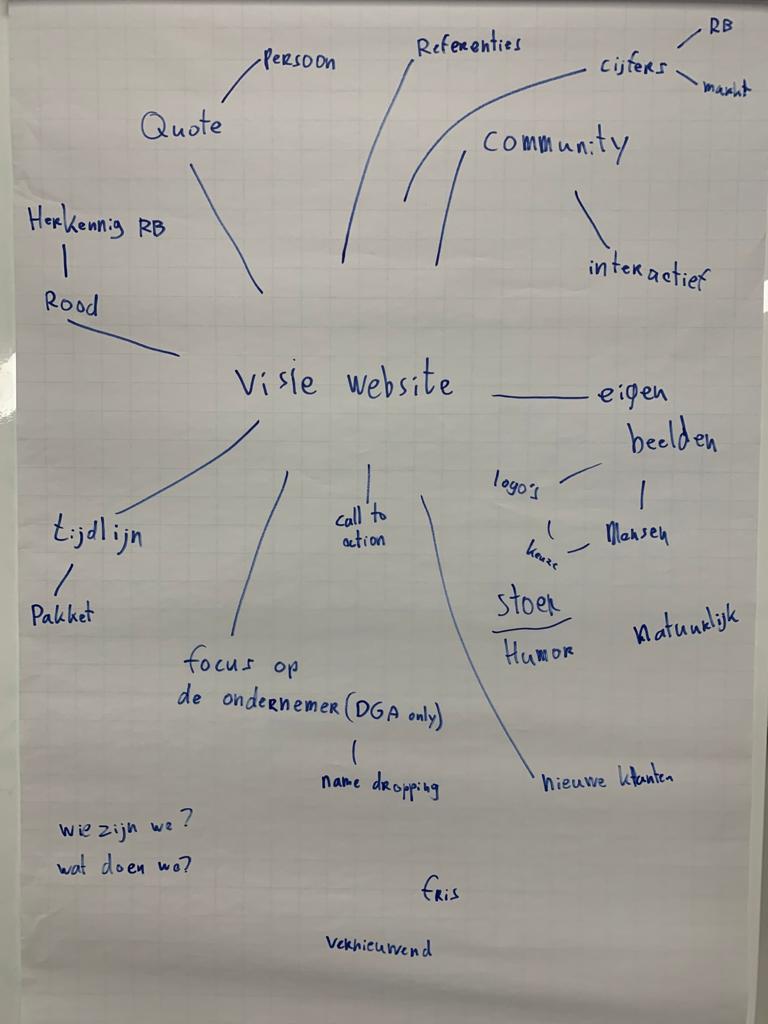 Referenties
RB
Persoon
cijfers
markt
Quote
Community
Herkennig RB
interactief
Rood
Visie website
eigen
beelden
logo's
tijdlijn
call to
action
Mensen
keuze
Pakket
stoer
Humor
Natuurlijk
focus op
de ondernemer (DGA only)
name dropping
nieuwe klanten
wie zijn we?
wat doen we?
fris
vernieuwend